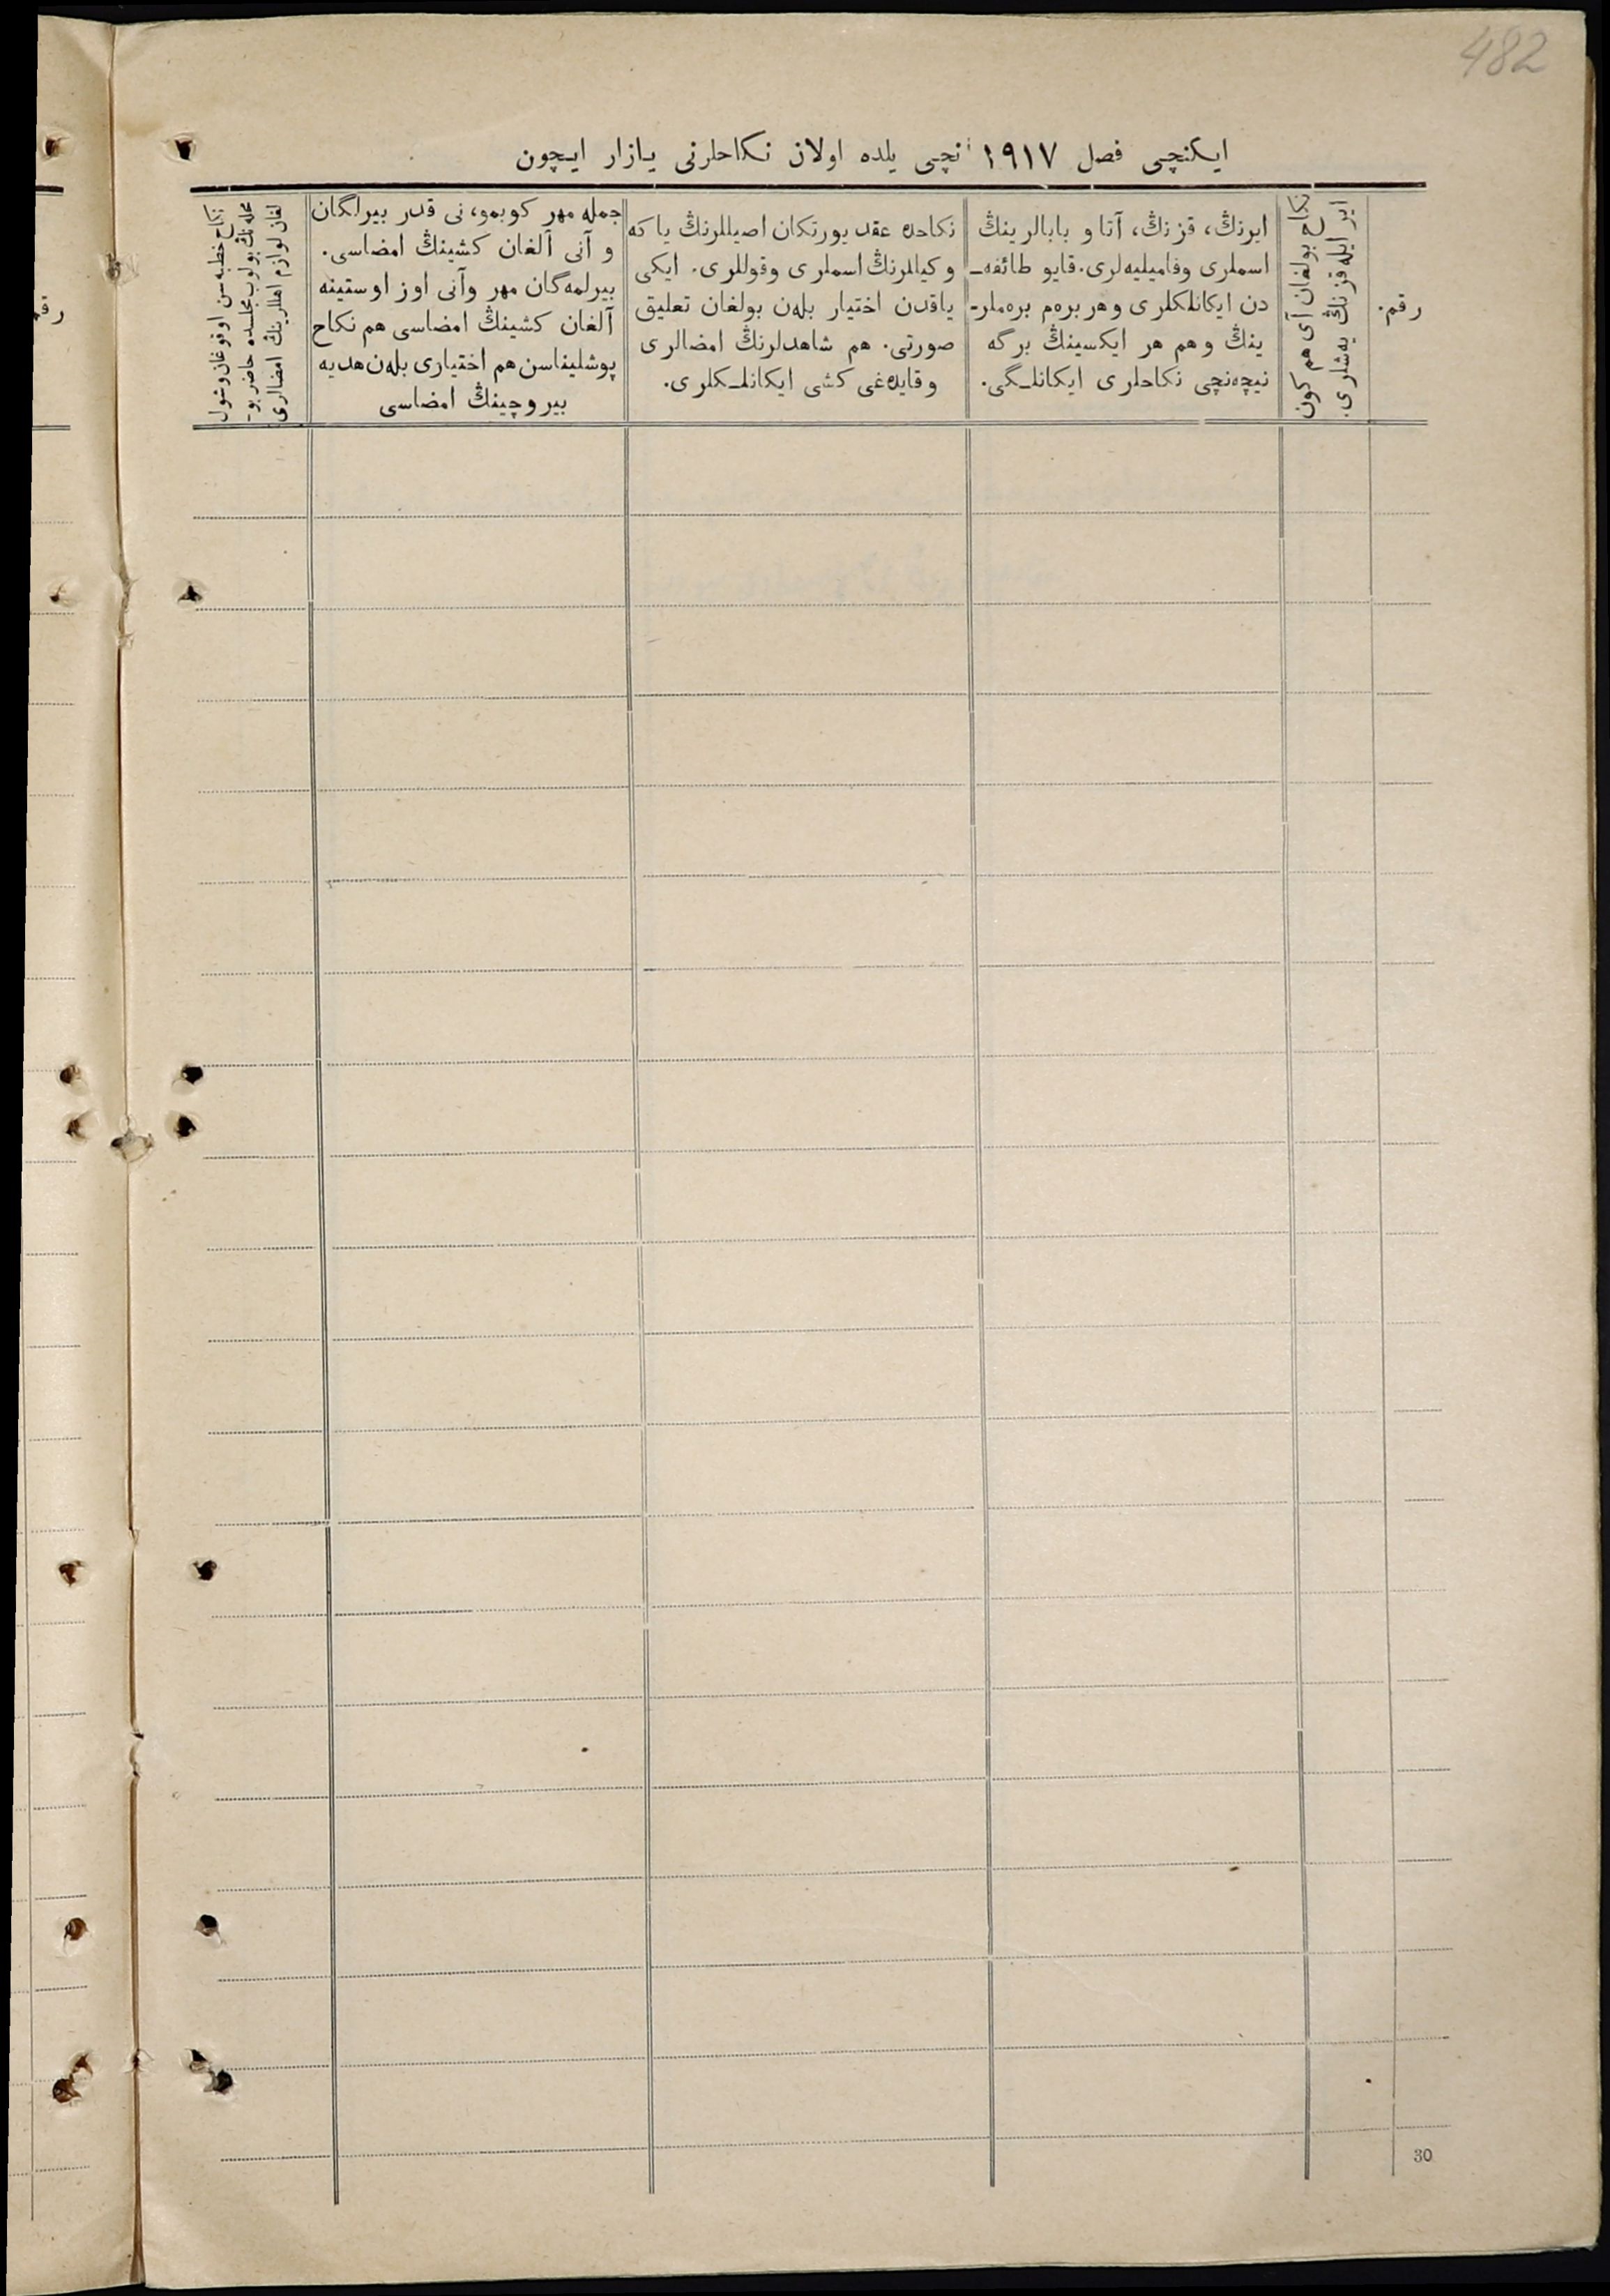 482
ایکنچی فصل ۱۹۱۷ نچی یلده اولان نکاحلرنی یازار ایچون
رقم.
نکاح بولغان آی هم کون
ایر ایله قزنڭ یه‌شلری.
ایرنڭ، قزنڭ، آتا و بابالرینڭ
اسملری وفامیلیه‌لری. قایو طائفه‌ـ
دن ایکانلکلری وهر بره‌م بره‌ملرـ
ینڭ وهم هر ایکسینڭ برگه
نیچه‌نچی نکاحلری ایکانلـگی.
نکاحده عقد یورتکان اصیللرنڭ یا که
وکیللرنڭ اسملری وقوللری. ایکی
یاقدن اختیار بله‌ن بولغان تعلیق
صورتی. هم شاهدلرنڭ امضالری
وقایده‌غی کشی ایکانلـکلری.
جمله مهر کوبمو، نی قدر بیرلگان
و آنی آلغان کشینڭ امضاسی.
بیرلمه‌گان مهر وآنی اوز اوستینه
آلغان کشینڭ امضاسی هم نکاح
پوشلیناسن هم اختیاری بله‌ن هدیه
بیروچینڭ امضاسی
نکاح خطبه‌سن اوقوغان وشول
محله‌نڭ بولوب مجلسده حاضر بوـ
لغان لوازم اهللرینڭ امضالری
30